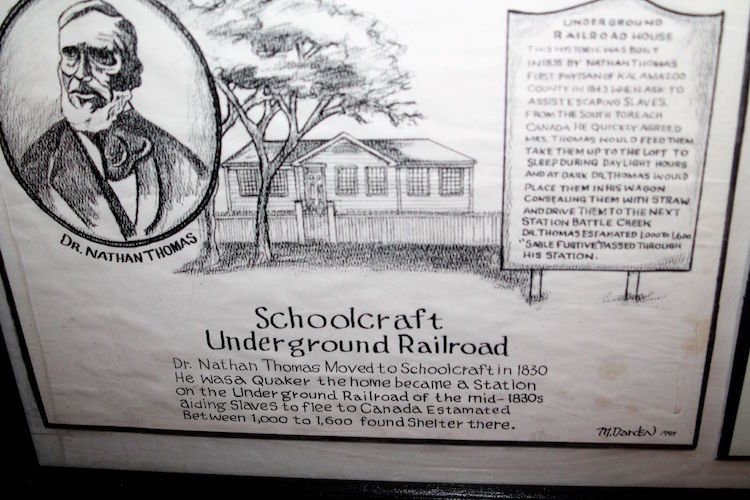 DR. NATHAN THOMAS
UNDERGROUND
RAILROAD HOUSE
THIS HISTORIC WAS BUILT
IN 1835 BY NATHAN THOMAS
FIRST PHYISAN OF KALAMAZOO
COUNTY IN 1843 WHEN ASK TO
ASSIST ESCAPING SLAVES.
FROM THE SOUTH TO REACH
CANADA HE QUICKLY AGREED
MRS. THOMAS WOULD FEED THEM
TAKE THEM UP TO THE LOFT TO
SLEEP DURING DAYLIGHT HOURS
AND AT DARK DR. THOMAS WOULD
PLACE THEM IN HIS WAGON
CONSEALING THEM WITH STRAW
AND DRIVE THEM TO THE NEXT
STATION BATTLE CREEK
DR. THOMAS ESTAMATED 1,000 TO 1,600
"SABLE FUGITIVE" PASSED THROUGH
HIS STATION.
Schoolcraft
Underground Railroad
Dr. Nathan Thomas Moved to Schoolcraft in 1830
He was a Quaker the home became a Station
on the Underground Railroad of the mid-1830s
aiding Slaves to flee to Canada Estamated
Between 1,000 to 1,600 found Shelter there.
M. Darden